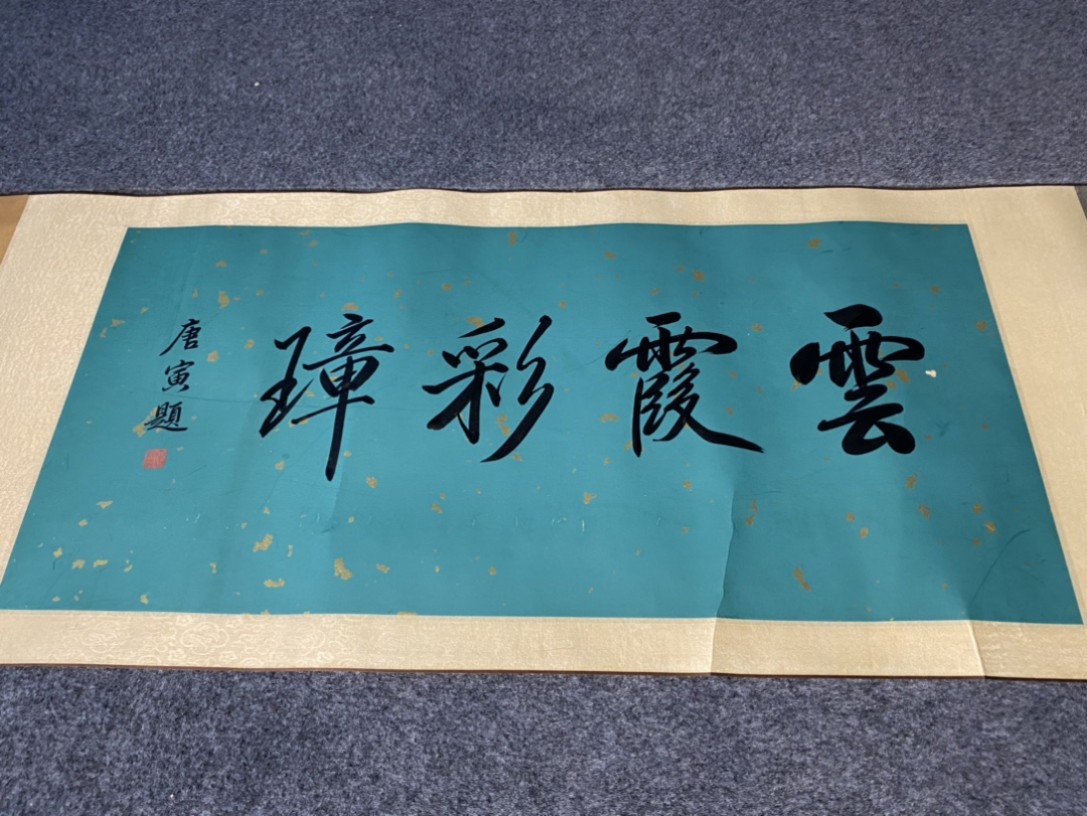 雲霞彩璋
唐寅題